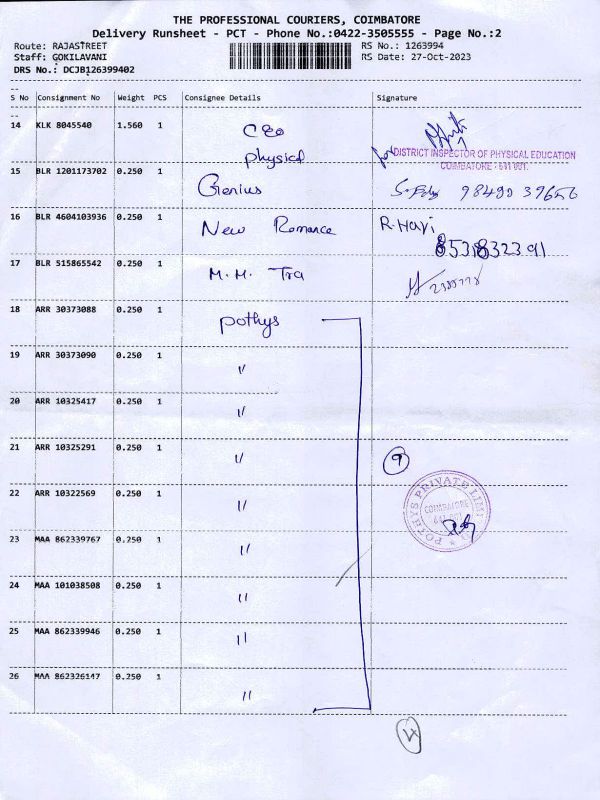 THE PROFESSIONAL COURIERS, COIMBATORE
Delivery Runsheet - PCT - Phone No.:0422-3505555 - Page No.:2
Route: RAJASTREET RS No.: 1263994
Staff: GOKILAVANI RS Date: 27-Oct-2023
DRS No.: DCJB126399402
S No Consignment No Weight PCS Consignee Details Signature
14 KLK 8045540 1.560 1 CEO
Physical
for DISTRICT INSPECTOR OF PHYSICAL EDUCATION
COIMBATORE - 641 001.
15 BLR 1201173702 0.250 1 Genius 98490 37656
16 BLR 4604103936 0.250 1 New Romance R. Hari
8531832391
17 BLR 515865542 0.250 1 M.M. Tra
18 ARR 30373088 0.250 1 pothys
19 ARR 30373090 0.250 1 "
20 ARR 10325417 0.250 1 "
21 ARR 10325291 0.250 1 " 9
22 ARR 10322569 0.250 1 "
POTHYS PRIVATE LIMITED
COIMBATORE
641 001
23 MAA 862339767 0.250 1 "
24 MAA 101038508 0.250 1 "
25 MAA 862339946 0.250 1 "
26 MAA 862326147 0.250 1 "
4